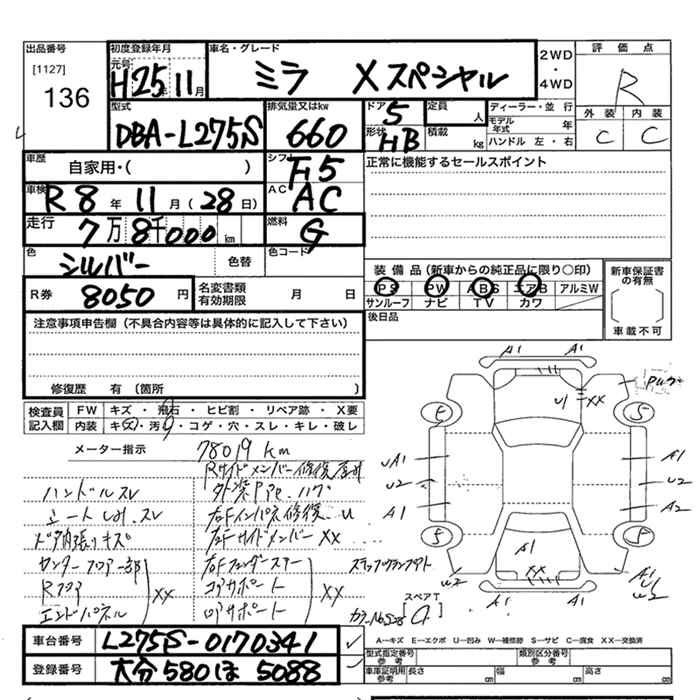 出品番号
[1127]
136
初度登録年月
元号
H25年11月
車名・グレード
ミラ Xスペシャル
2WD
・
4WD
評価点
R
外装 内装
C C
型式
DBA-L275S
排気量又はkw
660
ドア
5
形状
HB
定員
人
積載
kg
ディーラー・並行
モデル年式 年
ハンドル 左・右
車歴
自家用・( )
シフト
F5
正常に機能するセールスポイント
車検
R8年11月(28日)
AC
AC
走行
7万8千000km
燃料
G
色
シルバー
色替
色コード
R券
8050円
名変書類
有効期限
月 日
装備品(新車からの純正品に限り○印)
PS PW ABS エアB アルミW
サンルーフ ナビ TV カワ
後日品
新車保証書
の有無
車載不可
注意事項申告欄(不具合内容等は具体的に記入して下さい)
修復歴 有(箇所 )
検査員
記入欄
FW キズ・飛石・ヒビ割・リペア跡・X要
内装 キズ・汚・コゲ・穴・スレ・キレ・破レ
メーター指示 78019km
Rサイドメンバー修復
ハンドルスレ
シートしみ.スレ
ドア内張りキズ
センターフロア一部
Rフロア
エンドパネル
XX
右Fインパネ修復 u
右Fサイドメンバー XX
コアサポート
XX
A1 A1
U1 XX
5 5
UA1 A1
U2 U2
A1 A2
5
A1
XX
W2
A1 A1
スペアT
A-キズ E-エクボ U-凹み W-補修跡 S-サビ C-腐食 XX-交換済
車台番号
L275S-0170341
登録番号
大分580ほ5088
型式指定番号
参考
類別区分番号
参考
車庫証明用
参考
長さ cm 幅 cm 高さ cm